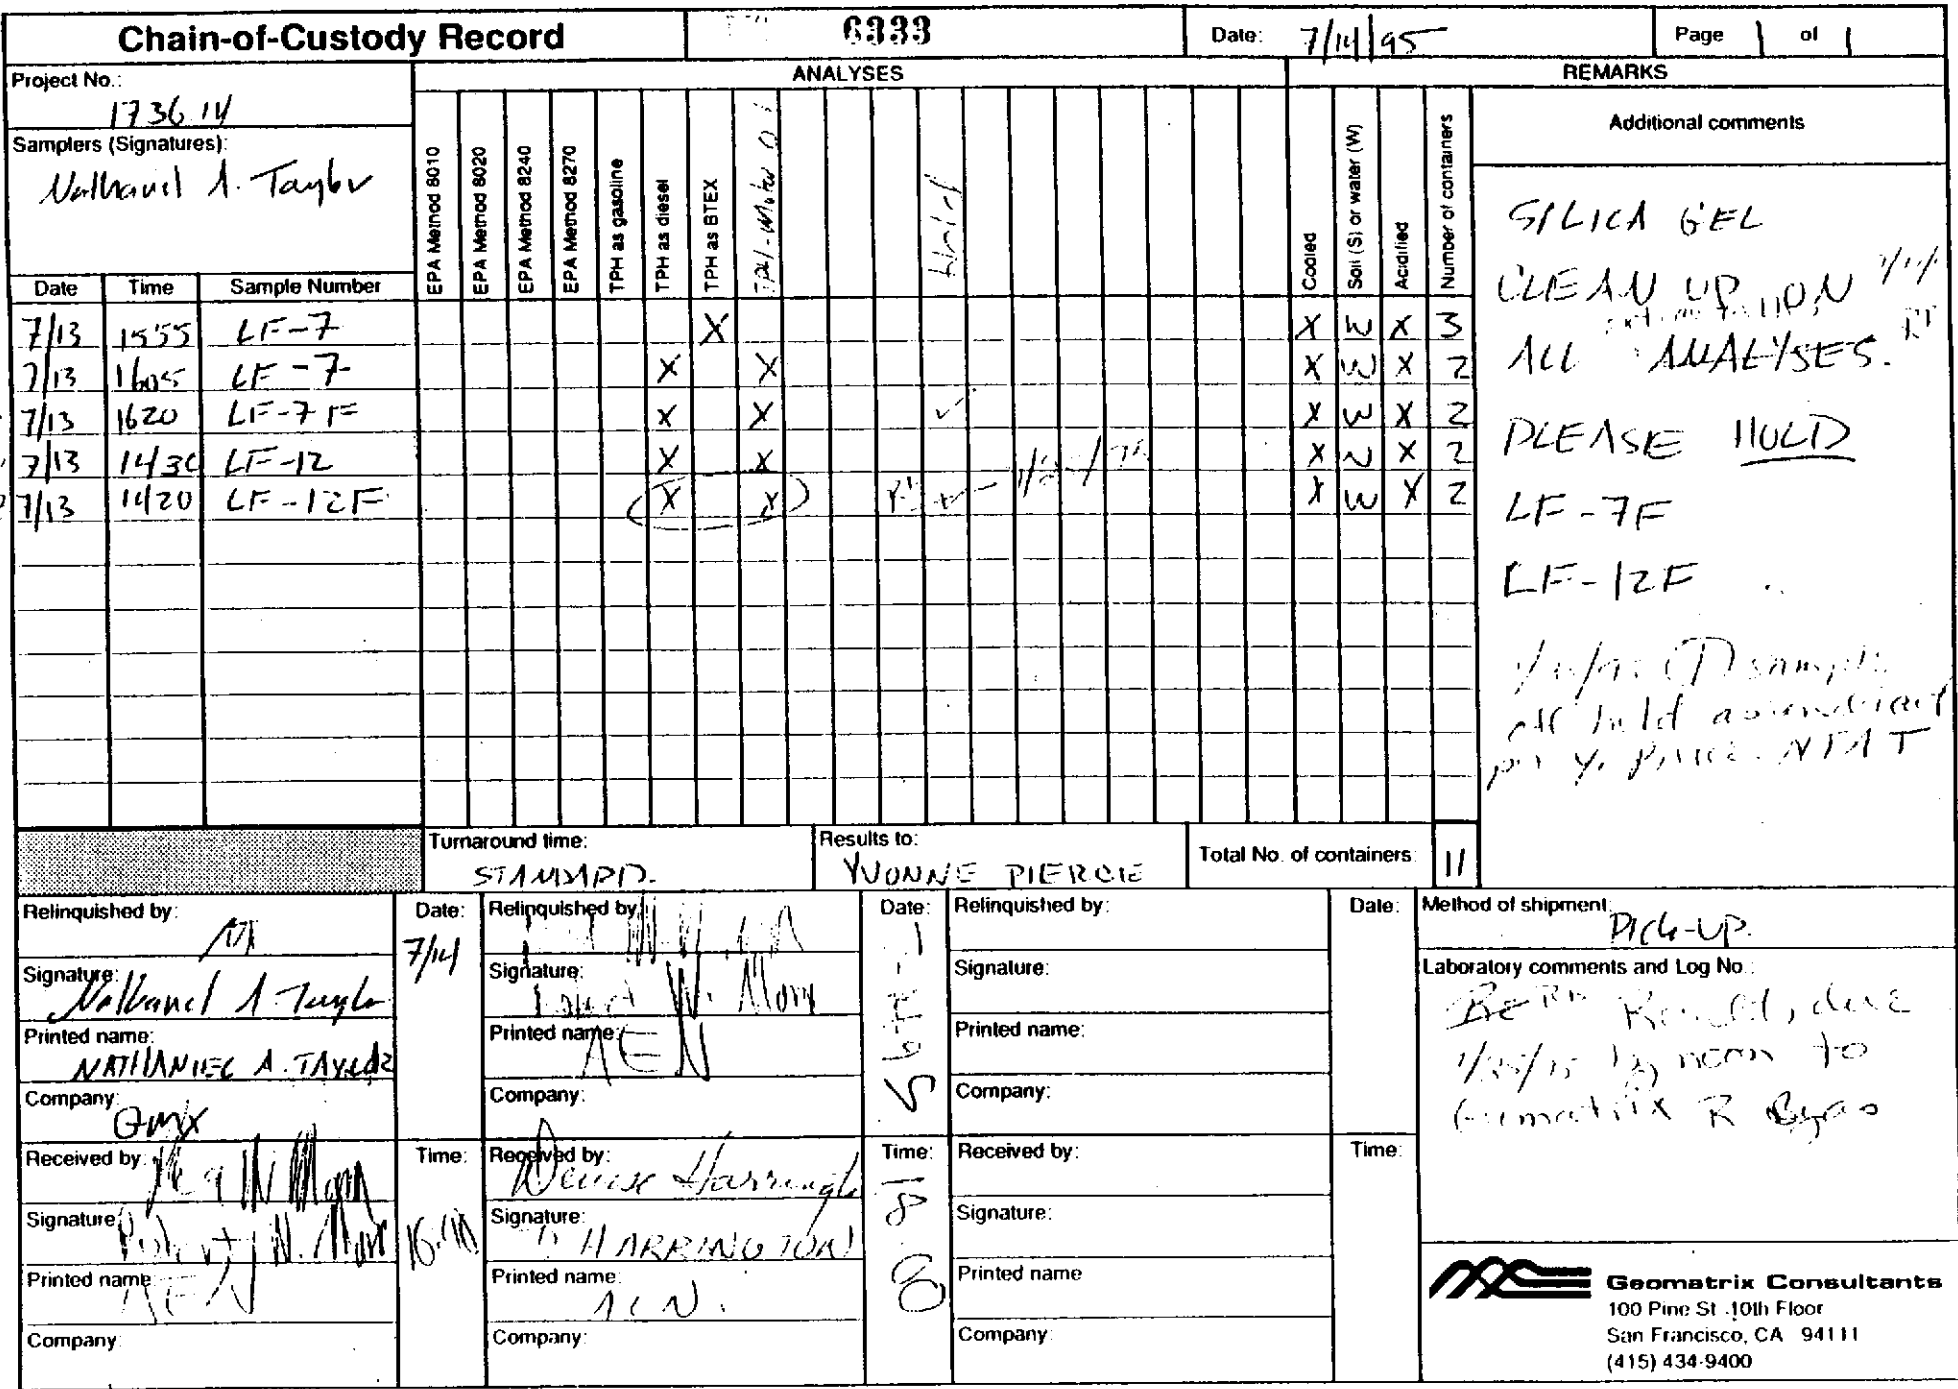 Chain-of-Custody Record
6333
Date: 7/14/95
Page 1 of 1
Project No.:
1736.14
Samplers (Signatures):
Nathaniel A. Taylor
ANALYSES
REMARKS
EPA Method 8010
EPA Method 8020
EPA Method 8240
EPA Method 8270
TPH as gasoline
TPH as diesel
TPH as BTEX
TPH-Motor Oil
Hold
Cooled
Soil (S) or water (W)
Acidified
Number of containers
Additional comments
Date Time Sample Number
7/13 1555 LF-7 X X W X 3
7/13 1605 LF-7 X X X W X 2
7/13 1620 LF-7F X X ✓ X W X 2
7/13 1430 LF-12 X X X W X 2
7/13 1420 LF-12F X X X W X 2
SILICA GEL
CLEAN UP ON
ALL ANALYSES.
PLEASE HOLD
LF-7F
LF-12F
sample
hold
per Y.
Turnaround time:
STANDARD.
Results to:
YVONNE PIERCE
Total No. of containers: 11
Relinquished by:
NT
Date:
7/14
Signature:
Nathaniel A Taylor
Printed name:
NATHANIEL A. TAYLOR
Company:
GMX
Received by:
Time:
Signature:
Printed name:
AEN
Company:
Relinquished by:
Date:
7-14-95
Signature:
Printed name:
AEN
Company:
Received by:
Denise Harrington
Time:
Signature:
D HARRINGTON
Printed name:
AEN.
Company:
Relinquished by:
Date:
Signature:
Printed name:
Company:
Received by:
Time:
Signature:
Printed name
Company:
Method of shipment:
PICK-UP.
Laboratory comments and Log No.:
due
by noon to
Geomatrix R Byas
Geomatrix Consultants
100 Pine St. 10th Floor
San Francisco, CA 94111
(415) 434-9400